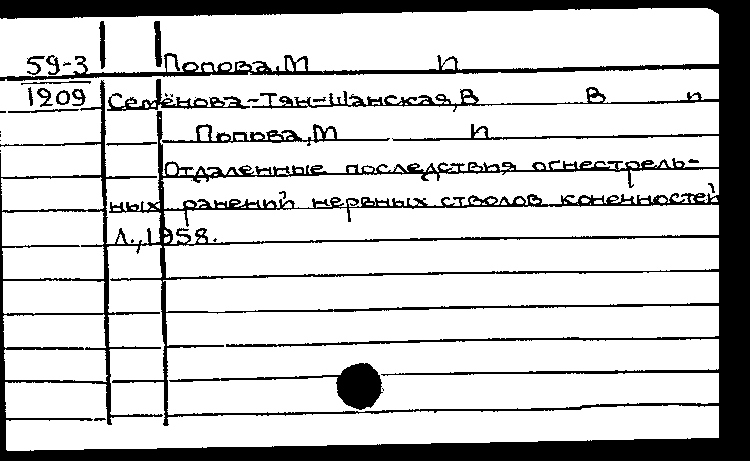 59-3 Попова, М П
1209 Семёнова-Тян-Шанская, В В п
Попова, М П
Отдаленные последствия огнестрель-
ных ранений нервных стволов конечностей
Л., 1958.